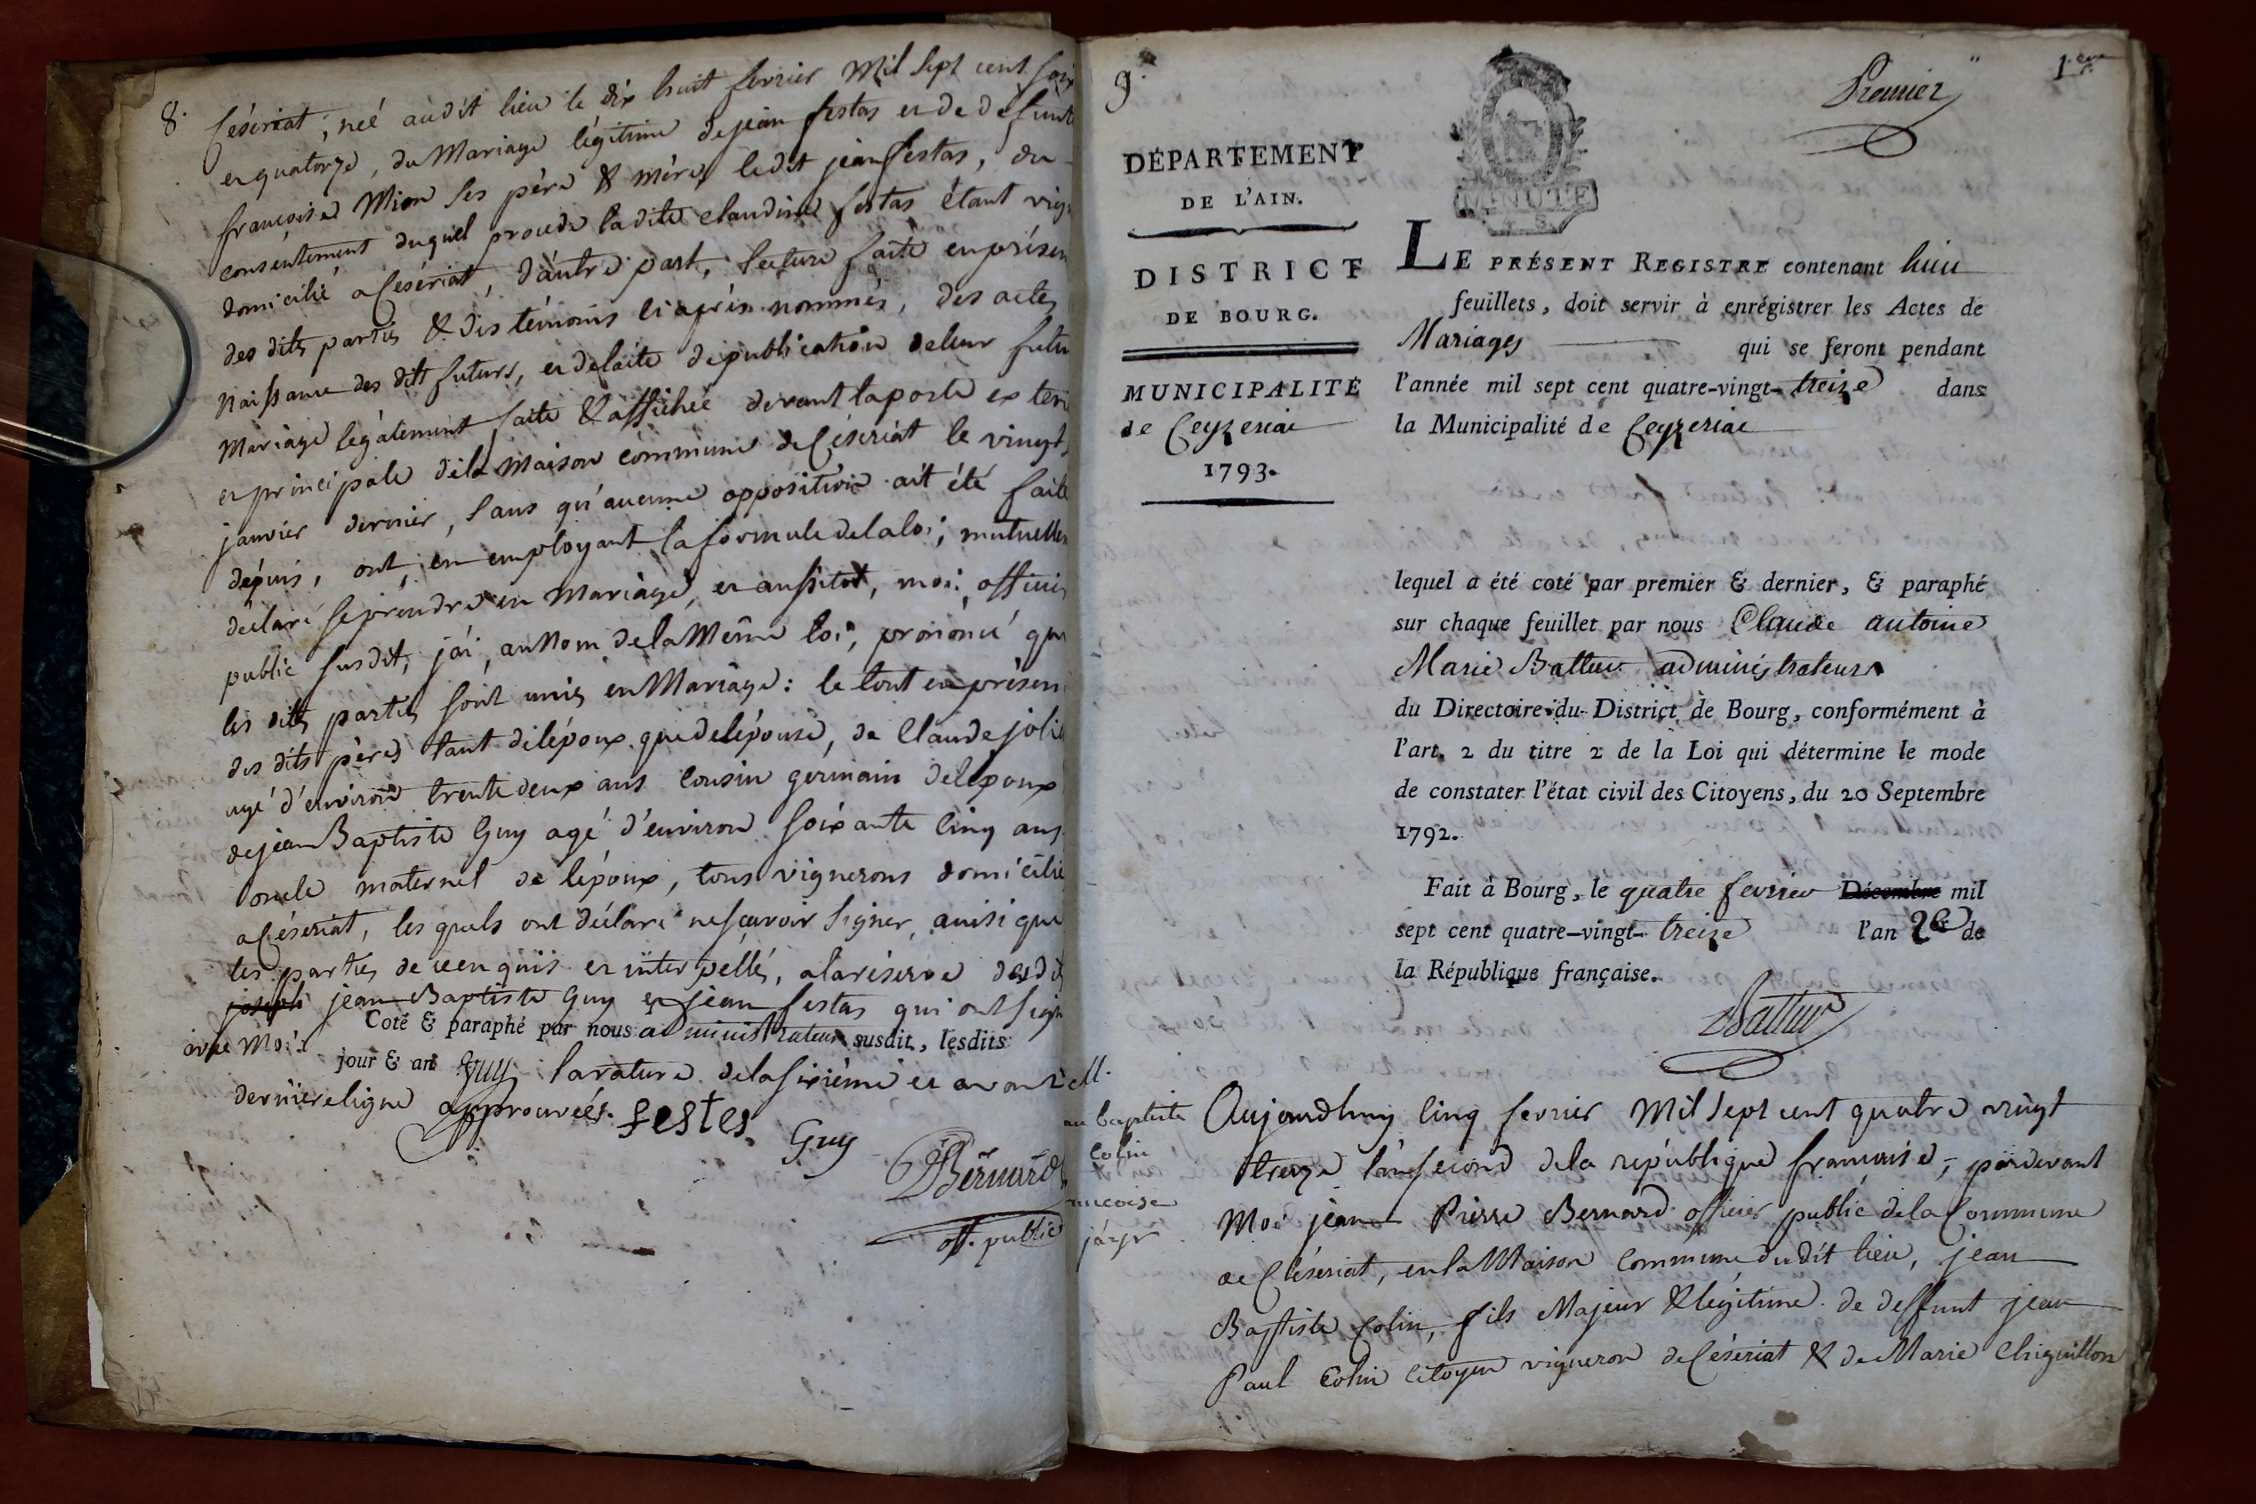 8.
Céseriat, née audit lieu le dix huit fevrier Mil sept cent soix
et quatorze, du Mariage légitime de jean festas et de défunte
françoise Mion ses père & mère, le dit jean festas, du
consentement duquel procede la dite claudine festas étant vign
domicilié a Céseriat, d'autre part, lecture faite en présen
des dits parties & des témoins ci après nommés, des actes
Naissance des dits futurs, et de l'acte de publication de leur futu
Mariage légalement faite & affichée devant la porte exteri
et principale de la Maison commune de Céseriat le vingt
janvier dernier, sans qu'aucune opposition ait été faite
depuis, ont, en employant la formule de la loi, mutuellem
declaré se prendre en Mariage, et aussitot, moi, officie
public susdit, j'ai, au Nom de la Même loi, prononcé que
les dits parties sont unies en Mariage: le tout en présen
des dits pères tant de l'époux que de l'épouse, de Claude jolis
agé d'environ trente deux ans cousin germain de l'époux
de jean Baptiste Guy agé d'environ soixante cinq ans
oncle maternel de l'époux, tous vignerons domicilié
a Céseriat, les quels ont déclaré ne sçavoir signer, ainsi que
les parties de ce enquis et interpéllés, a la réserve desdit
joseph jean Baptiste Guy et jean festas qui ont sign
Coté & paraphé par nous administrateur susdit, lesdits
avec Moi.
jour & an Guy la rature de la sixième et avant
dernière ligne approuvées. festes
Guy
Bernard
off. public
9.
Premier
1.er
MINUTE
DÉPARTEMENT
DE L'AIN.
DISTRICT
DE BOURG.
MUNICIPALITÉ
de Ceyzeriat
1793.
LE PRÉSENT REGISTRE contenant huit
feuillets, doit servir à enrégistrer les Actes de
Mariages qui se feront pendant
l'année mil sept cent quatre-vingt-treize dans
la Municipalité de Ceyzeriat
lequel a été coté par premier & dernier, & paraphé
sur chaque feuillet par nous Claude antoine
Marie Battur administrateur
du Directoire du District de Bourg, conformément à
l'art. 2 du titre 2 de la Loi qui détermine le mode
de constater l'état civil des Citoyens, du 20 Septembre
1792.
Fait à Bourg, le quatre fevrier Décembre mil
sept cent quatre-vingt-treize l'an 2e de
la République française.
Battur
an baptiste
Colin
ancoise
Aujourdhuy cinq fevrier Mil sept cent quatre vingt
treize l'an second de la république françoise, pardevant
Moi jean Pierre Bernard officier public de la Commune
de Céseriat, en la Maison Commune dudit lieu, jean
Baptiste Colin, fils Majeur & légitime de deffunt jean
Paul Colin citoyen vigneron de Céseriat & de Marie Chiquillon